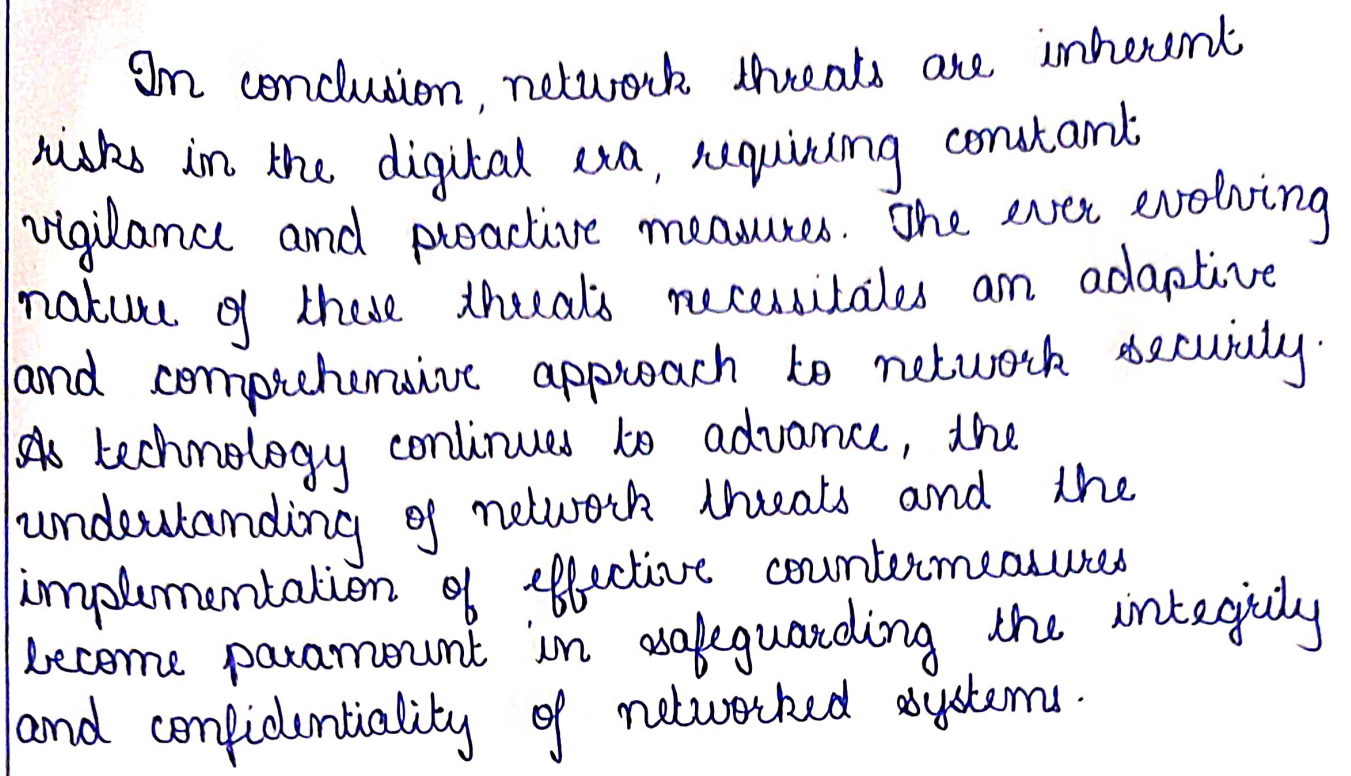 In conclusion, network threats are inherent
risks in the digital era, requiring constant
vigilance and proactive measures. The ever evolving
nature of these threats necessitates an adaptive
and comprehensive approach to network security.
As technology continues to advance, the
understanding of network threats and the
implementation of effective countermeasures
become paramount in safeguarding the integrity
and confidentiality of networked systems.